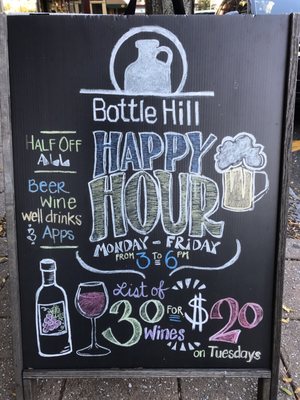 Bottle Hill
HAPPY
HOUR
MONDAY - FRIDAY
FROM 3 TO 6 PM
HALF OFF
ALL
BEER
WINE
WELL DRINKS
& APPS
LIST OF
30 WINES FOR $20
ON TUESDAYS